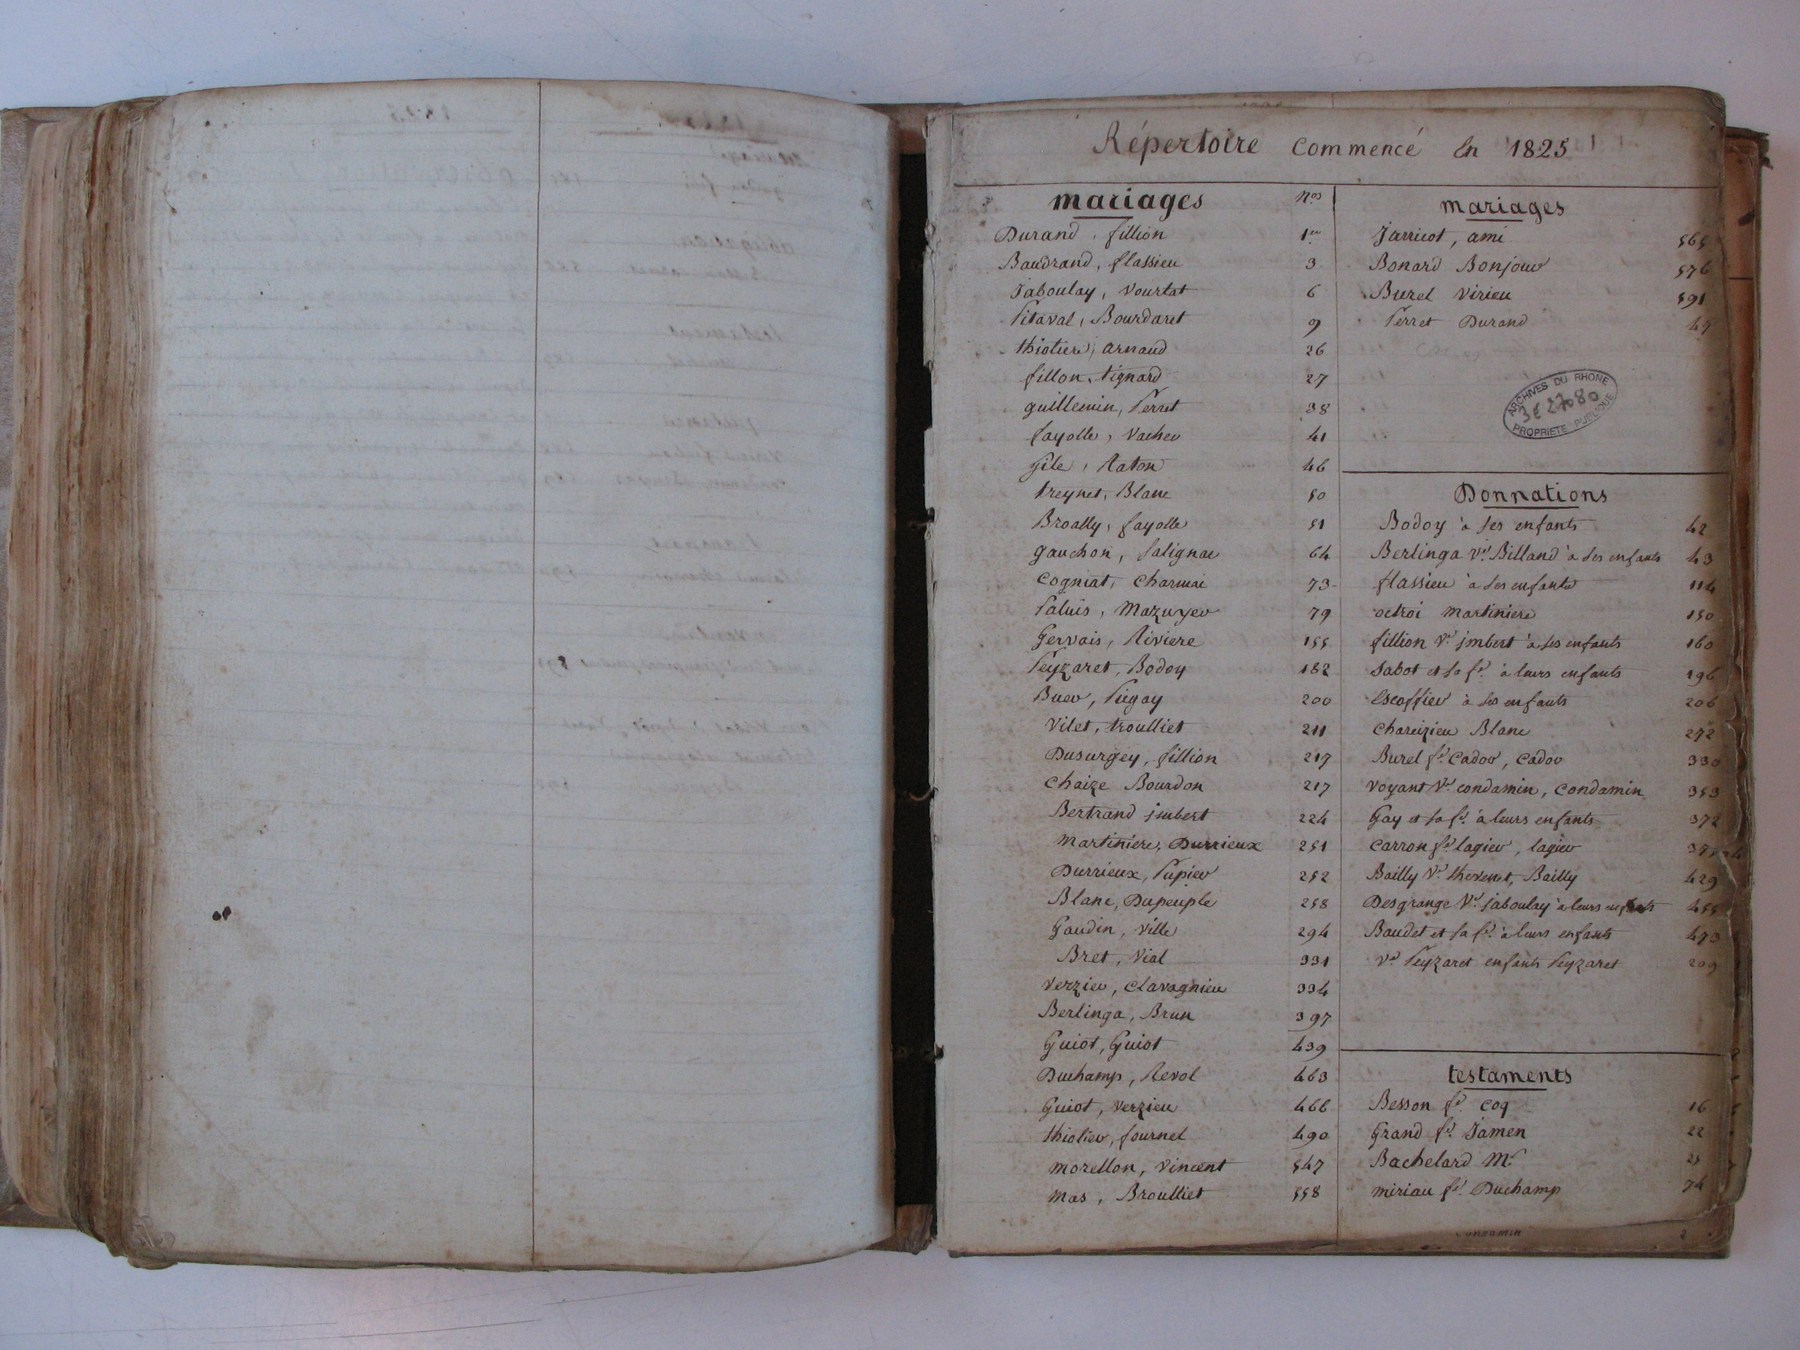 Répertoire Commencé En 1825
mariages Nos
Durand, fillion 1er
Baudrand, flassieu 3
Jaboulay, Vourlat 6
Pitaval, Bourdaret 9
thiotiere, arnaud 26
fillon, tignard 27
guillemin, Perret 38
fayolle, Vacher 41
Gile, Raton 46
treynet, Blanc 50
Broally, fayolle 51
gauchon, Salignac 64
Cogniat, Charmai 73
Paluis, Mazuyer 79
Gervais, Riviere 155
Peyzaret, Bodoy 182
Buer, Pugay 200
Vilet, troulliet 211
Dusurgey, fillion 217
Chaize Bourdon 217
Bertrand imbert 224
Martiniere, Durrieux 251
Durrieux, Pupier 252
Blanc, Dupeuple 258
Gaudin, Ville 294
Bret, Vial 331
Verzieu, Clavagnieu 334
Berlinga, Brun 397
Guiot, Guiot 439
Duchamp, Revol 463
Guiot, Verzieu 466
thiolier, fournel 490
morellon, Vincent 547
mas, Broulliet 558
mariages
Jarricot, ami 565
Bonard Bonjour 576
Burel Virieu 591
Perret Durand 47
ARCHIVES DU RHONE
3E27080
PROPRIETE PUBLIQUE
Donnations
Bodoy à ses enfants 42
Berlinga Ve Billand à ses enfants 43
flassieu à ses enfants 114
octroi martiniere 150
fillion Ve imbert à ses enfants 160
Sabot et sa fe à leurs enfants 196
Escoffier à ses enfants 206
Charizieu Blanc 272
Burel fe Cador, Cador 330
Voyant Ve condamin, Condamin 353
Gay et sa fe à leurs enfants 372
Carron fe lagier, lagier
Bailly Ve thevenet, Bailly 429
Desgrange Ve jaboulay à leurs enfants 455
Baudet et sa fe à leurs enfants 473
Ve Peyzaret enfants Peyzaret 209
testaments
Besson fe Coq 16
Grand fe Jamen 22
Bachelard Me 25
miriau fe Duchamp 74
Condamin